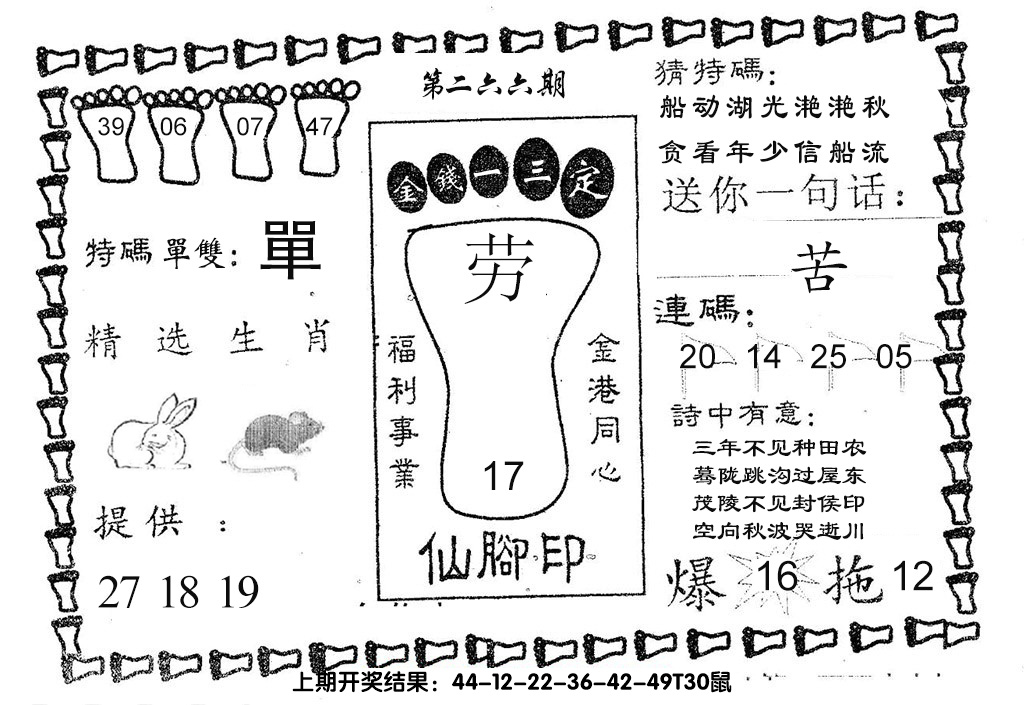 第二六六期
39 06 07 47
特碼單雙：單
精选生肖
提供：
27 18 19
金錢一三定
劳
福利事業
金港同心
17
仙腳印
猜特碼：
船动湖光滟滟秋
贪看年少信船流
送你一句话：
苦
連碼：
20 14 25 05
詩中有意：
三年不见种田农
蓦陇跳沟过屋东
茂陵不见封侯印
空向秋波哭逝川
爆 16 拖 12
上期开奖结果：44-12-22-36-42-49T30鼠